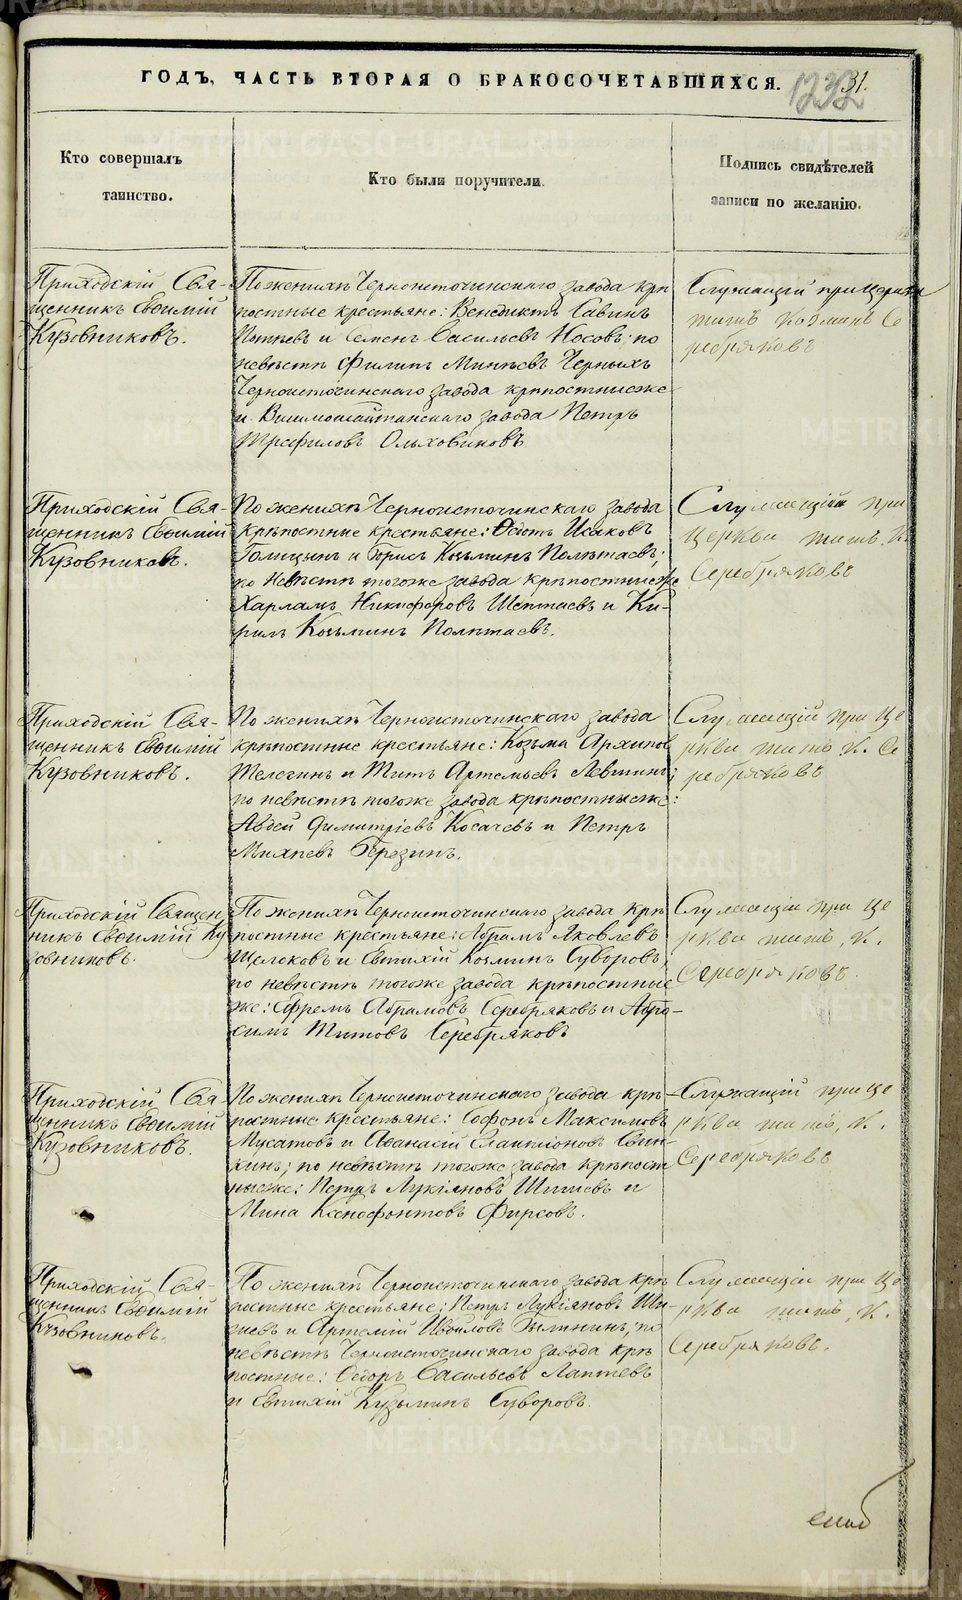 ГОДЪ, ЧАСТЬ ВТОРАЯ О БРАКОСОЧЕТАВШИХСЯ.
1232 31.
Кто совершалъ
таинство.
Кто были поручители.
Подпись свидѣтелей
записи по желанію.
Приходскій Свя-
щенникъ Евѳимій
Кузовниковъ.
По женихѣ Черноисточинскаго завода крѣ
постные крестьяне: Венедиктъ Савинъ
и Семенъ Васильевъ Носовъ; по
невѣстѣ Филипъ Минѣевъ Черныхъ
Черноисточинскаго завода крѣпостныеже
и Висимошайтанскаго завода Петръ
Трефиловъ Ольховиковъ
Служащій при церкви
титъ Козминъ Се
ребряковъ
Приходскій Свя-
щенникъ Евѳимій
Кузовниковъ.
По женихѣ Черноисточинскаго завода
крѣпостные крестьяне: Ѳедотъ Исаковъ
Голицынъ и Борисъ Козьминъ Полѣтаевъ;
по невѣстѣ тогоже завода крѣпостныеже
Харламъ Никифоровъ Шептаевъ и Ки-
рилъ Козьминъ Полѣтаевъ.
Служащій при
церкви титъ. К.
Серебряковъ
Приходскій Свя-
щенникъ Евѳимій
Кузовниковъ.
По женихѣ Черноисточинскаго завода
крѣпостные крестьяне: Козьма Архипов
Телегинъ и Титъ Артемьевъ Левшинъ;
по невѣстѣ тогоже завода крѣпостныеже:
Авдей Димитріевъ Косачевъ и Петръ
Михѣевъ Березинъ.
Служащій при це
ркви титъ К. Се
ребряковъ
Приходскій Священ
никъ Евѳимій Ку
зовниковъ.
По женихѣ Черноисточинскаго завода крѣ
постные крестьяне: Абрамъ Яковлевъ
Щелоковъ и Евтихій Козминъ Суворовъ;
по невѣстѣ тогоже завода крѣпостные
же: Ефремъ Абрамовъ Серебряковъ и Абро-
симъ Титовъ Серебряковъ
Служащій при це
ркви титъ, К.
Серебряковъ.
Приходскій Свя
щенникъ Евѳимій
Кузовниковъ.
По женихѣ Черноисточинскаго завода крѣ-
постные крестьяне: Софонъ Максимовъ
Мусатовъ и Аѳанасій Свин-
кинъ; по невѣстѣ тогоже завода крѣпост
ныеже: Петръ Лукіяновъ Шишевъ и
Мина Ксенофонтовъ Фирсовъ.
Служащій при це
ркви титъ, К.
Серебряковъ
Приходскій Свя-
щенникъ Евѳимій
Кузовниковъ.
По женихѣ Черноисточинскаго завода крѣ
постные крестьяне: Петръ Лукіяновъ Ши-
шевъ и Артемій Ивойловъ; по
невѣстѣ Черноисточинскаго завода крѣ
постные: Ѳедоръ Васильевъ Лаптевъ
и Евтихій Кузьминъ Суворовъ.
Служащій при це
ркви титъ, К.
Серебряковъ.
METRIKI.GASO-URAL.RU